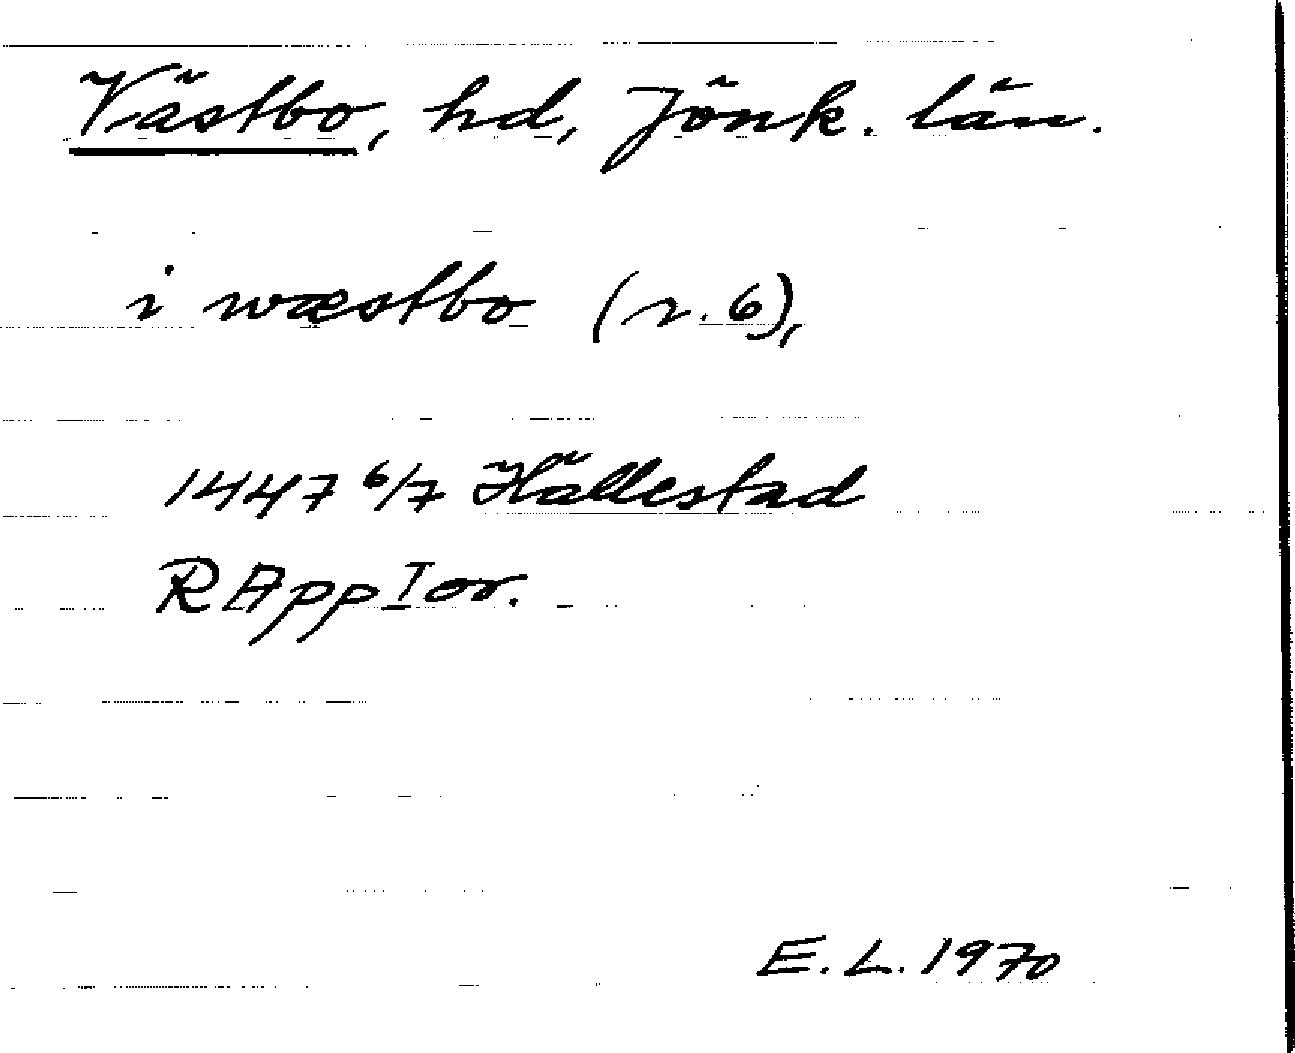 Västbo, hd, Jönk. län.
i wæstbo (r. 6),
1447 6/7 Hällestad
RAppI or.
E. L. 1970